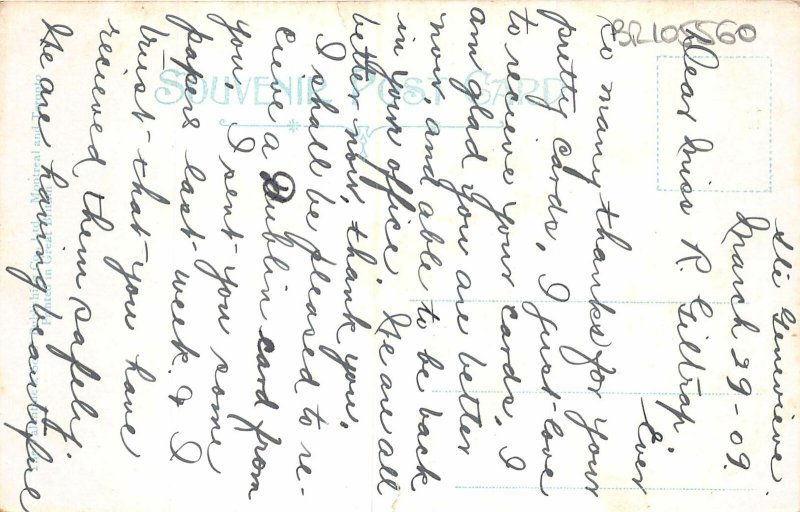 BR105560
SOUVENIR POST CARD
Ste Genevieve.
March 29-09.
Dear Miss R. Giltrap
Ever
so many thanks for your
pretty cards, I just love
to recieve your cards. I
am glad you are better
now, and able to be back
in your office. We are all
better now, thank you.
I shall be pleased to re-
cieve a Dublin card from
you. I sent you some
papers last week. & I
trust that you have
recieved them safely.
We are having beautiful
Montreal and Toronto
Printed in Great Britain